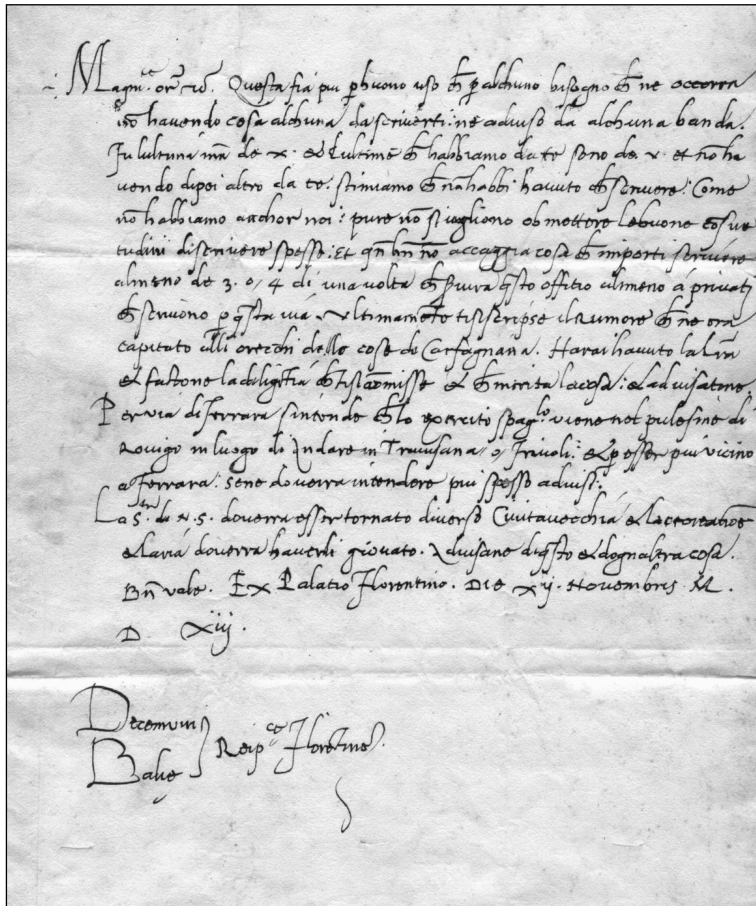 Magn.ce or.r nr̄. Questa fia piu p buono uso ch̄ p alchuno bisogno ch̄ ne occorra
nō havendo cosa alchuna da scriverti: ne adviso da alchuna banda.
Fu lultima nr̄a de x. et lultime ch̄ habbiamo da te sono de. v. et nō ha
vendo dipoi altro da te: stimiamo ch̄ nō habbi havuto ch̄ scrivere: Come
nō habbiamo anchor noi: pure nō si vogliono obmettere le buone cōsue
tudini di scrivere spesso: Et qn̄ bn̄ nō accaggia cosa ch̄ importi scrivere
almeno de 3. o, 4 di una volta ch̄ q̄sto offitio almeno á privati
ch̄ scrivono p q̄sta via. Ultimamēto ti si scripse il Rumore ch̄ ne era
capitato alli orecchi delle cose de Carfagnana. Harai havuto la lr̄a
et factone la diligētia ch̄ ti si cōmisse et ch̄ merita la cosa: et advisatone.
Per viá di Ferrara s'intende ch̄ lo exercito spag.lo viene nel pulesine di
Rovigo in luogo di andare in Trivisana, o, Frivoli: et p esser piú vicino
a Ferrara: sene doverra intendere piu spesso advisi:
La S.tr de N. S. doverra esser tornato diverso Civitavecchiá et la recreatiōe
et laria doverra haverli giovato. Advisane di q̄sto et dognaltra cosa.
Bn̄ vale. Ex Palatio Florentino. Die xij. Novembris M.
D. Xiij.
Decemviri
Balie
Reip.ce Florentine.